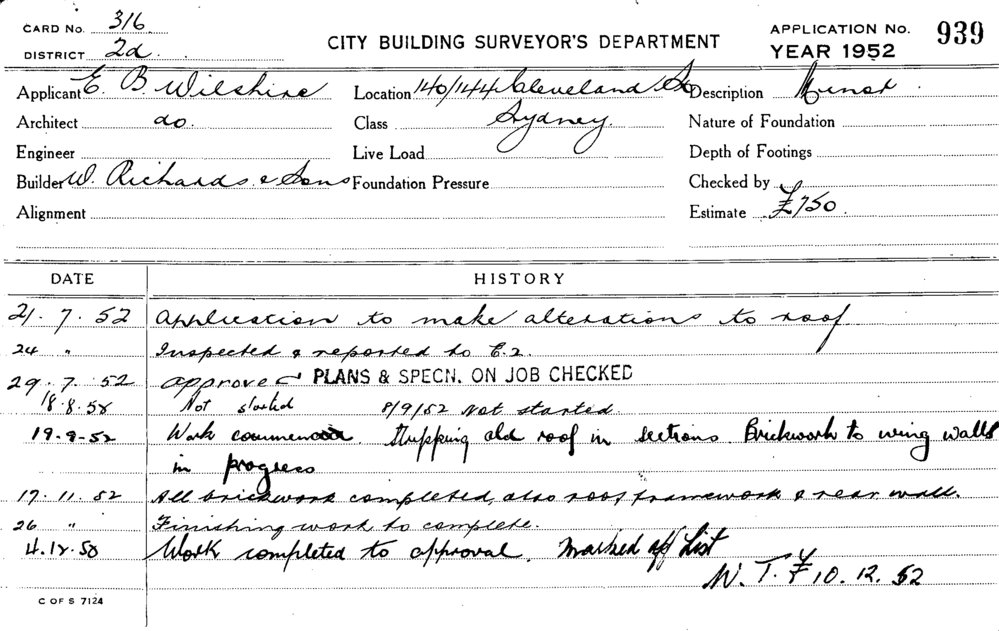 CARD No. 316
DISTRICT 2d.
CITY BUILDING SURVEYOR'S DEPARTMENT
APPLICATION No. 939
YEAR 1952
Applicant E. B. Wilshire Location 140/144 Cleveland St Description Minor
Architect do. Class Sydney. Nature of Foundation
Engineer Live Load Depth of Footings
Builder W. Richards & Sons Foundation Pressure Checked by
Alignment Estimate £750.
DATE HISTORY
21.7.52 Application to make alterations to roof
24 " Inspected & reported to E.2.
29.7.52 Approved PLANS & SPECN. ON JOB CHECKED
18.8.52 Not started 8/9/52 Not started.
19.9.52 Work commenced Stripping old roof in sections. Brickwork to wing walls
in progress
17.11.52 All brickwork completed, also roof framework & rear wall.
26 " Finishing work to complete.
4.12.50 Work completed to approval. Marked off List
W. T. F 10.12.52
C OF S 7124